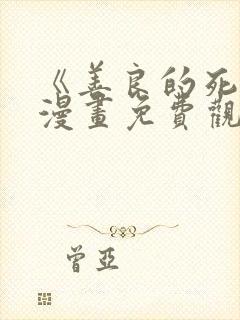 《善良的死
漫畫免費觀
曾亞